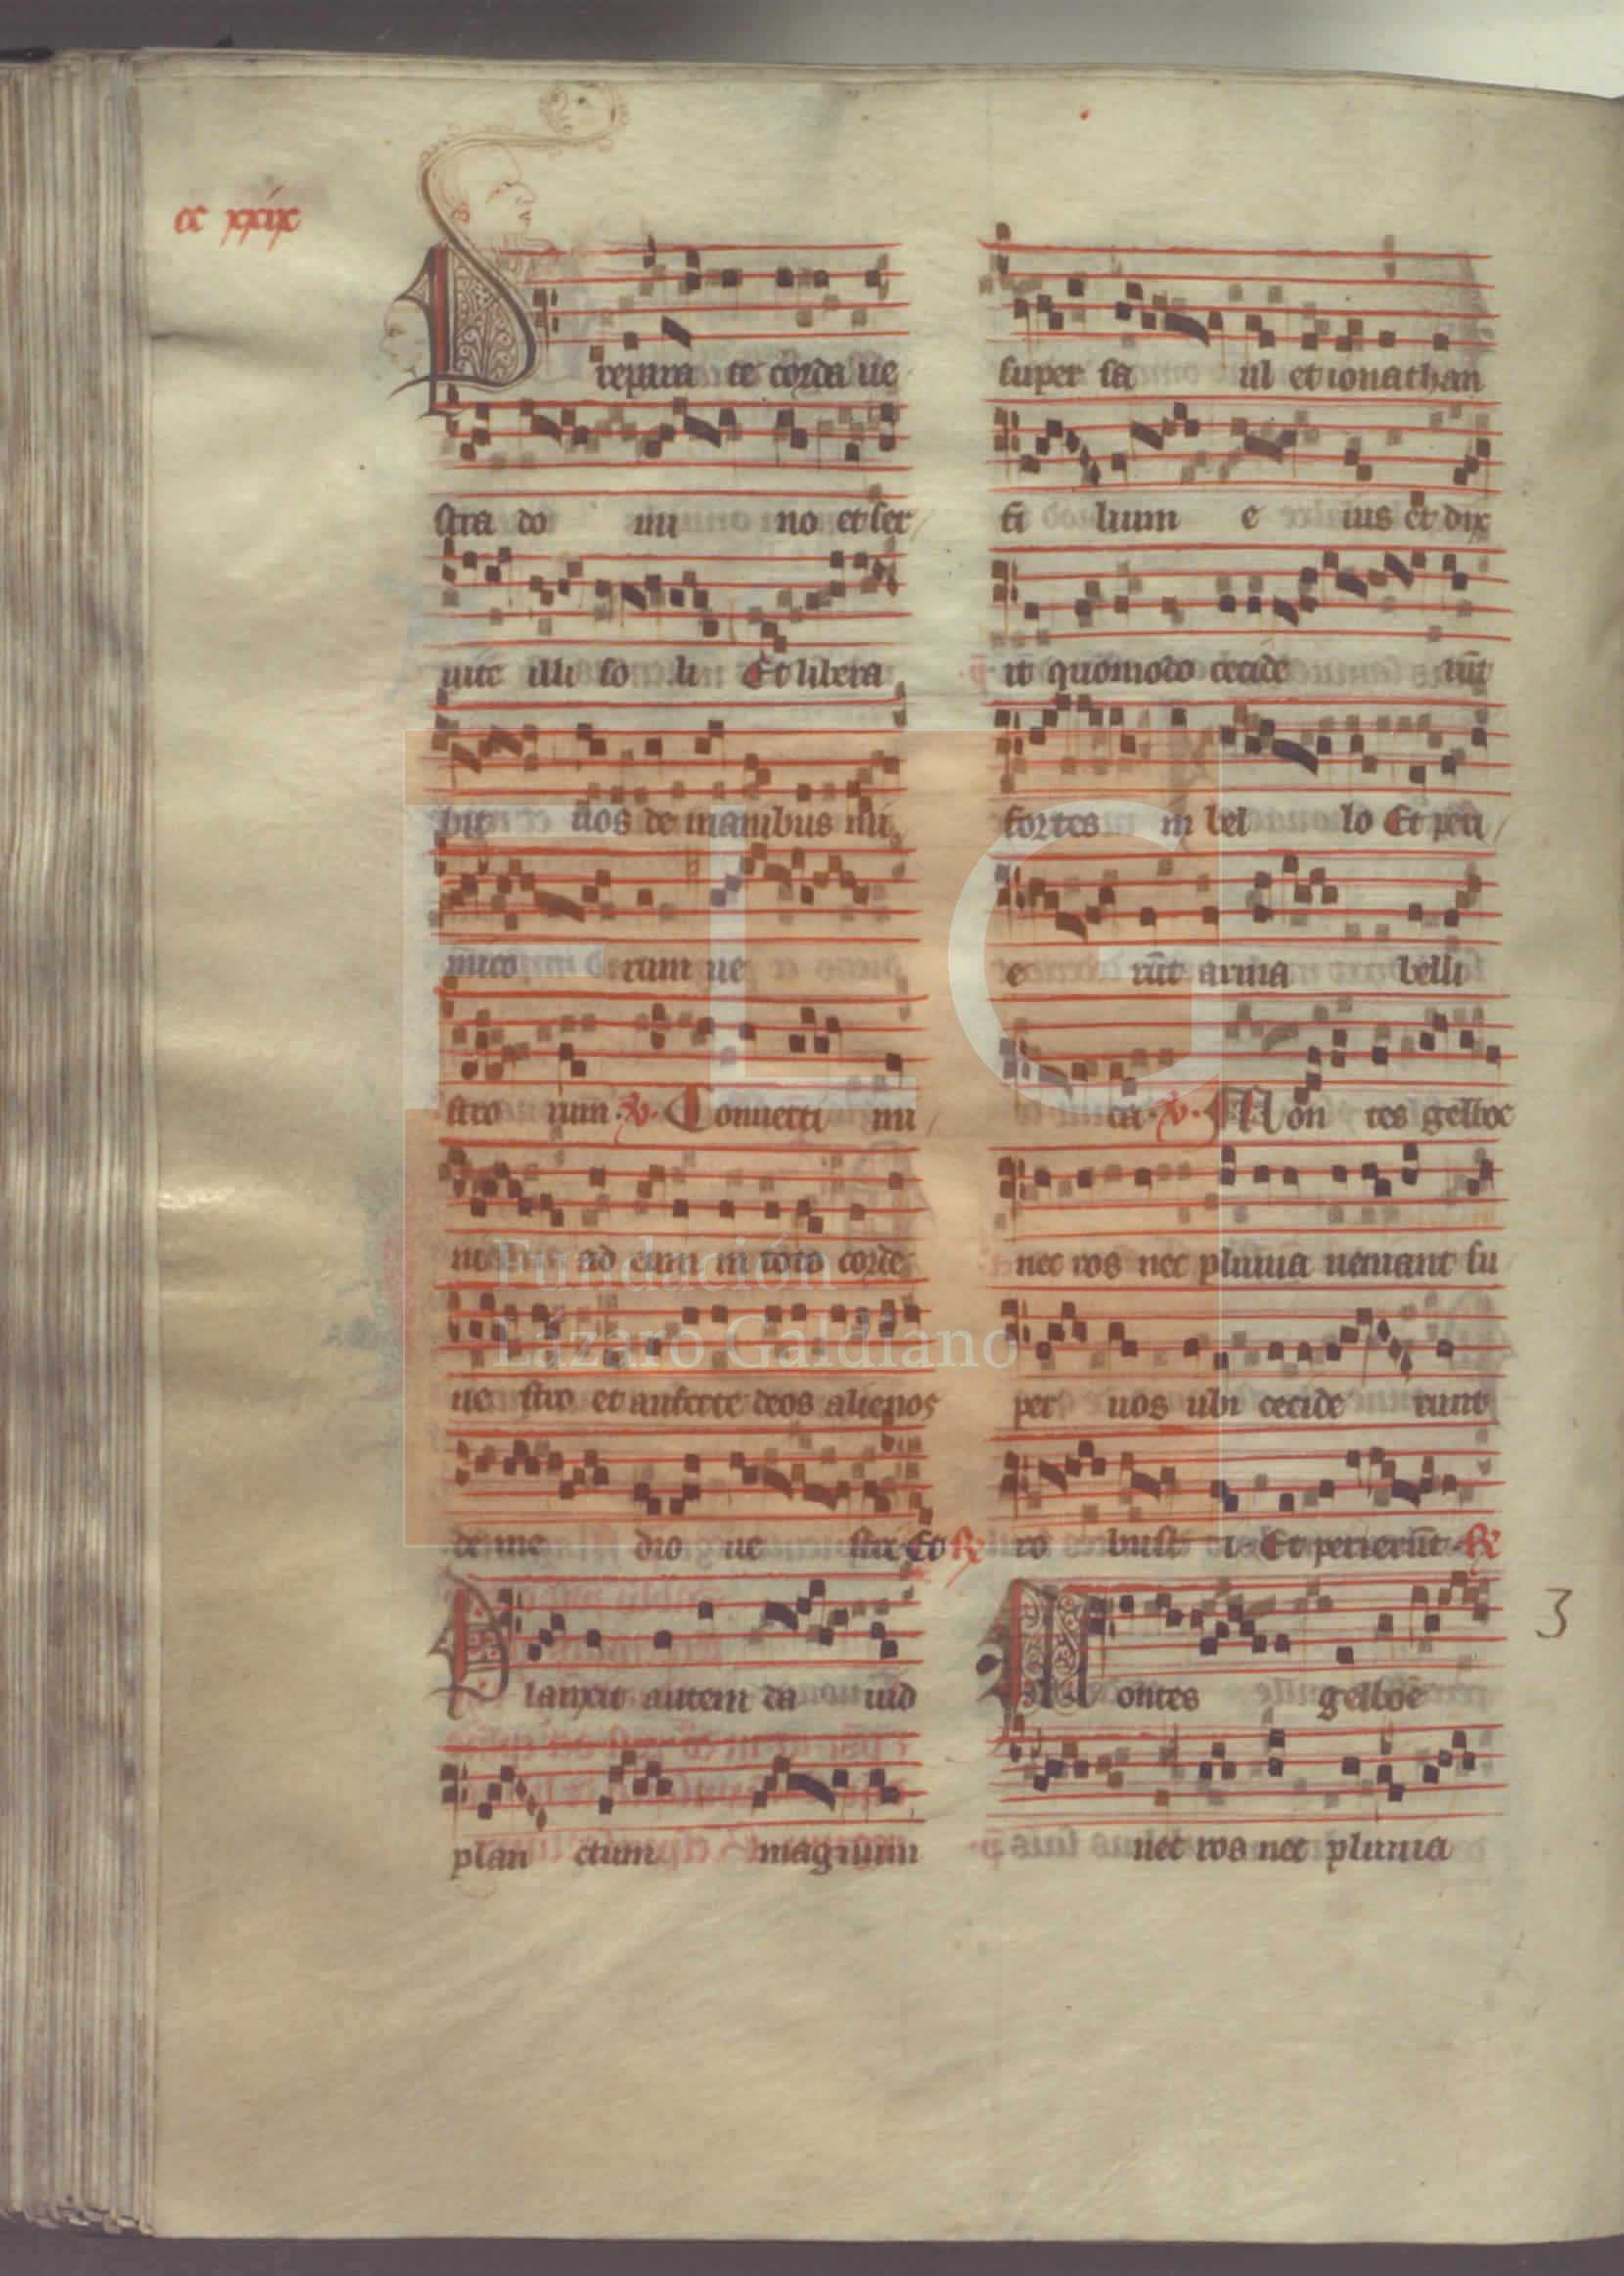 cc xxix
Prepara te corda ue
stra do mi no et ser
uite illi so li Et libera
bit uos de manibus ini
mico rum ue
stro rum. V. Conuerti mi
ni ad eum in toto corde
ue stro et auferte deos alienos
de me dio ue stri Et R
Planxit autem da uid
plan ctum magnum
super sa ul et ionathan
fi lium e ius et dix
it quomodo cecide rūt
fortes in bel lo Et peri
e rūt arma belli
ca. V. Mon tes gelboe
nec ros nec pluuia ueniant su
per uos ubi cecide runt
ro bust i Et perierūt R
Montes gelboe
nec ros nec pluuia
3
FLG
Fundación
Lázaro Galdiano